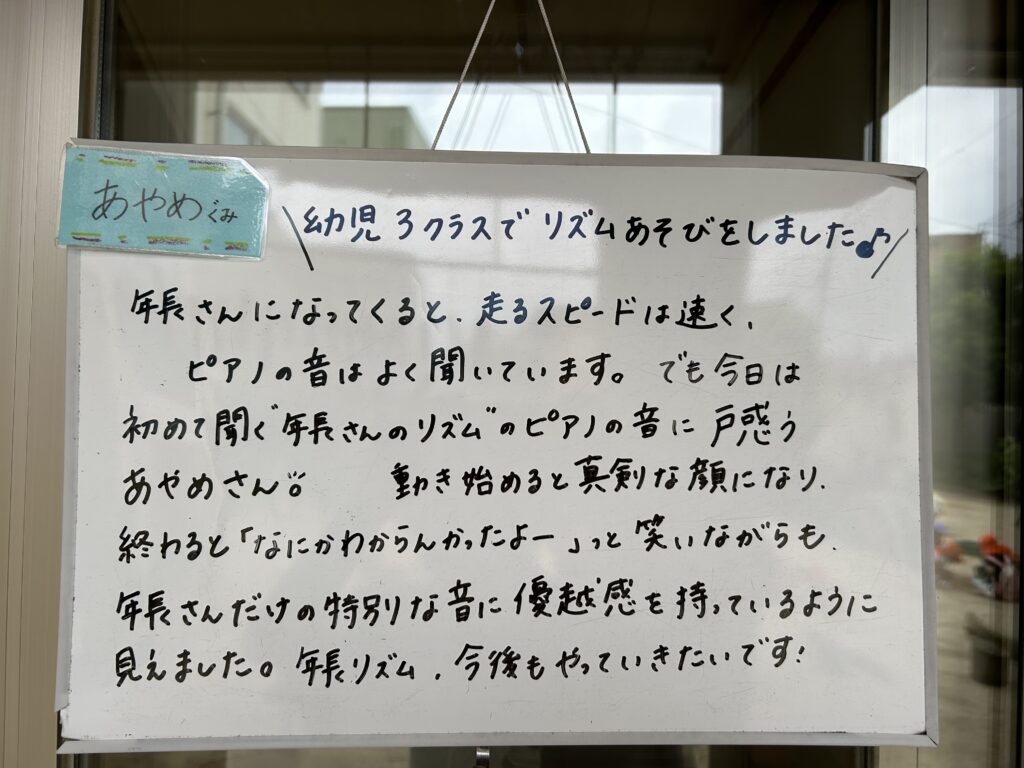 あやめぐみ
\幼児3クラスで リズムあそびをしました♪/
年長さんになってくると、走るスピードは速く、
ピアノの音はよく聞いています。でも今日は
初めて聞く"年長さんのリズム"のピアノの音に戸惑う
あやめさん。 動き始めると真剣な顔になり、
終わると「なにかわからんかったよー」っと笑いながらも、
年長さんだけの特別な音に優越感を持っているように
見えました。年長リズム、今後もやっていきたいです!